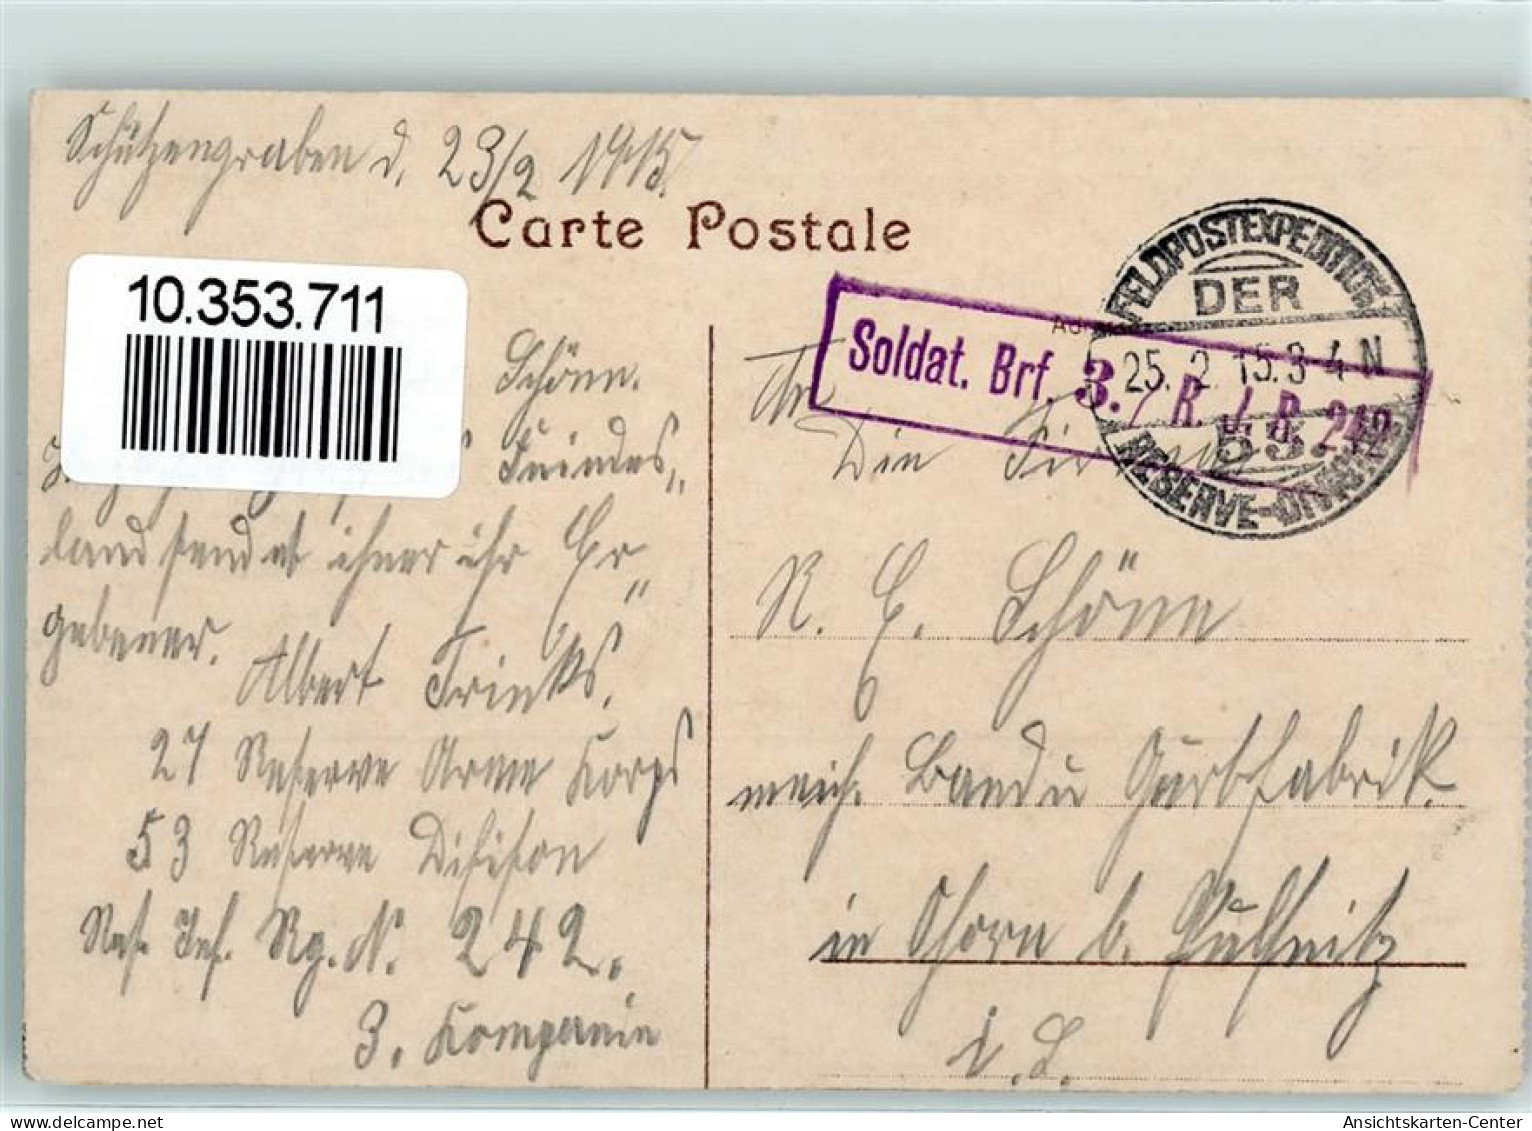 Schützengraben d. 23/2 1915.
Carte Postale
10.353.711
FELDPOSTEXPEDITION
DER
25.2.15.3-4 N
53.
RESERVE-DIVISION
Soldat. Brf. 3. / R. J. R. 242
Schönn.
Feindes„
land sendet ihner ihr Er„
gebener.
Albert Trinks.
27 Reserve Armee Korps
53 Reserve Difision
Res. Inf. Rg. N. 242.
3. Kompanie
An
Die Firma
R. E. Schönn
mech. Band u Gurtfabrik.
in Ohorn b. Pulsnitz
i. S.
Ansichtskarten-Center